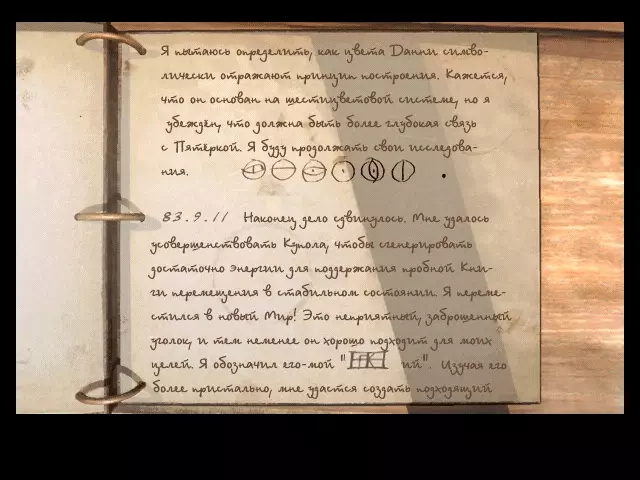 Я пытаюсь определить, как цвета Данни симво-
лически отражают принцип построения. Кажется,
что он основан на шестицветовой системе, но я
убеждён, что должна быть более глубокая связь
с Пятёркой. Я буду продолжать свои исследова-
ния.
83.9.11 Наконец дело сдвинулось. Мне удалось
усовершенствовать Купола, чтобы сгенерировать
достаточно энергии для поддержания пробной Кни-
ги перемещения в стабильном состоянии. Я переме-
стился в новый Мир! Это неприятный, заброшенный
уголок, и тем неменее он хорошо подходит для моих
целей. Я обозначил его-мой " ий". Изучая его
более пристально, мне удастся создать подходящий